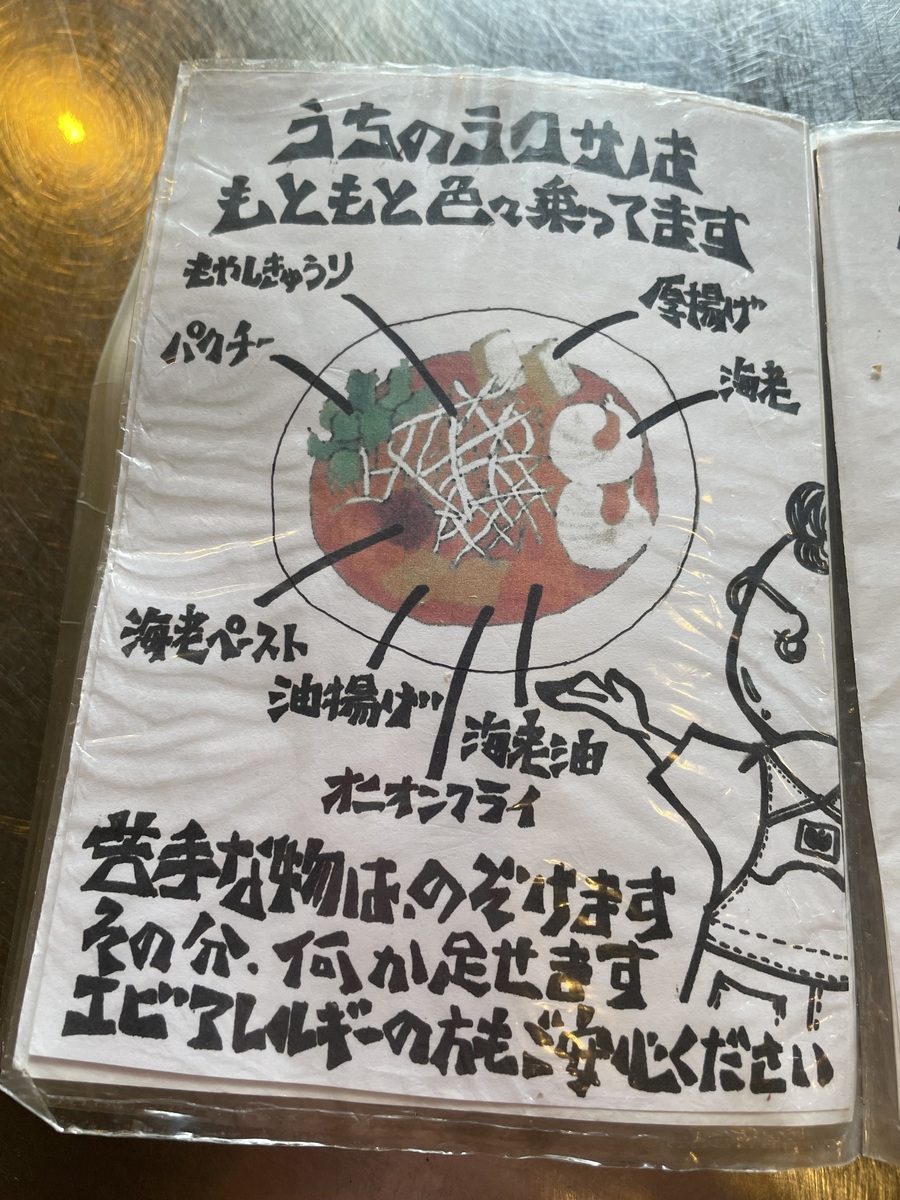 うちのラクサは
もともと色々乗ってます
もやしきゅうり
厚揚げ
パクチー
海老
海老ペースト
油揚げ
海老油
オニオンフライ
苦手な物は、のぞけます
その分、何か足せます
エビアレルギーの方もご安心ください